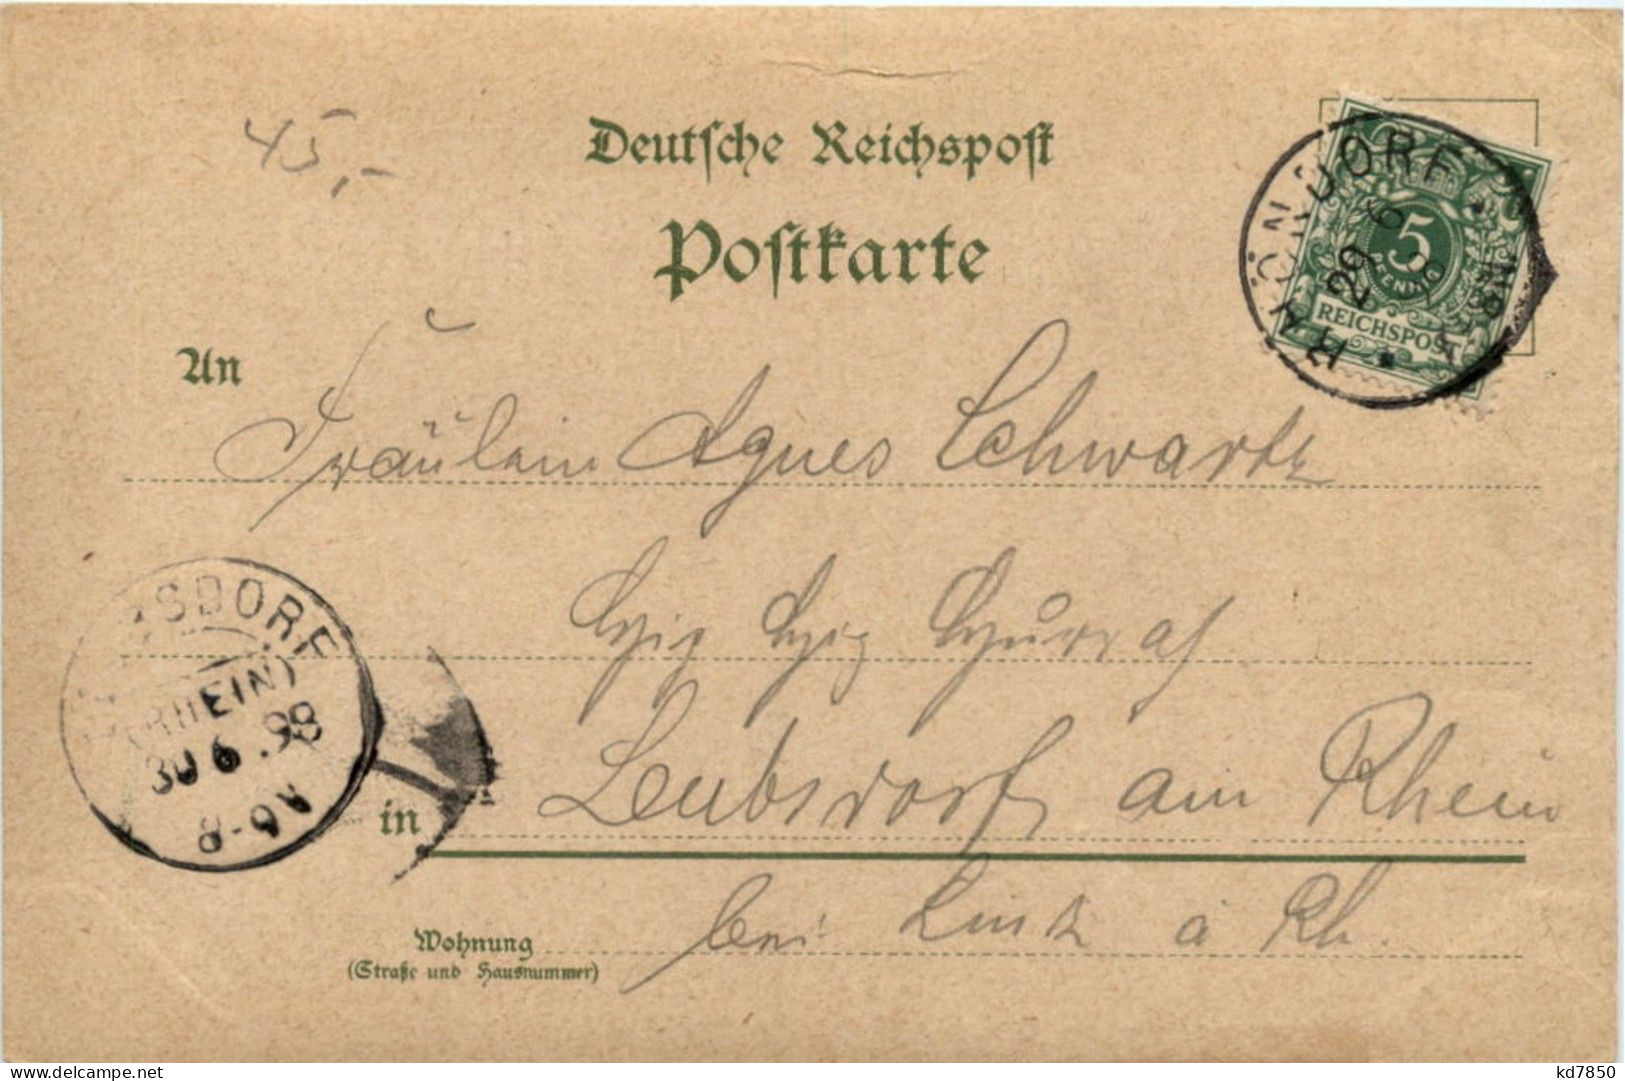 45,-
Deutsche Reichspost
Postkarte
RHÖNDORF
29 6
5
PFENNIG
REICHSPOST
An
Fräulein Agnes Schwartz
Leubsdorf am Rhein
in
bei Linz a Rh.
SDORF
(RHEIN)
30 6 .98
A6-8
Wohnung
(Straße und Hausnummer)
www.delcampe.net
kd7850